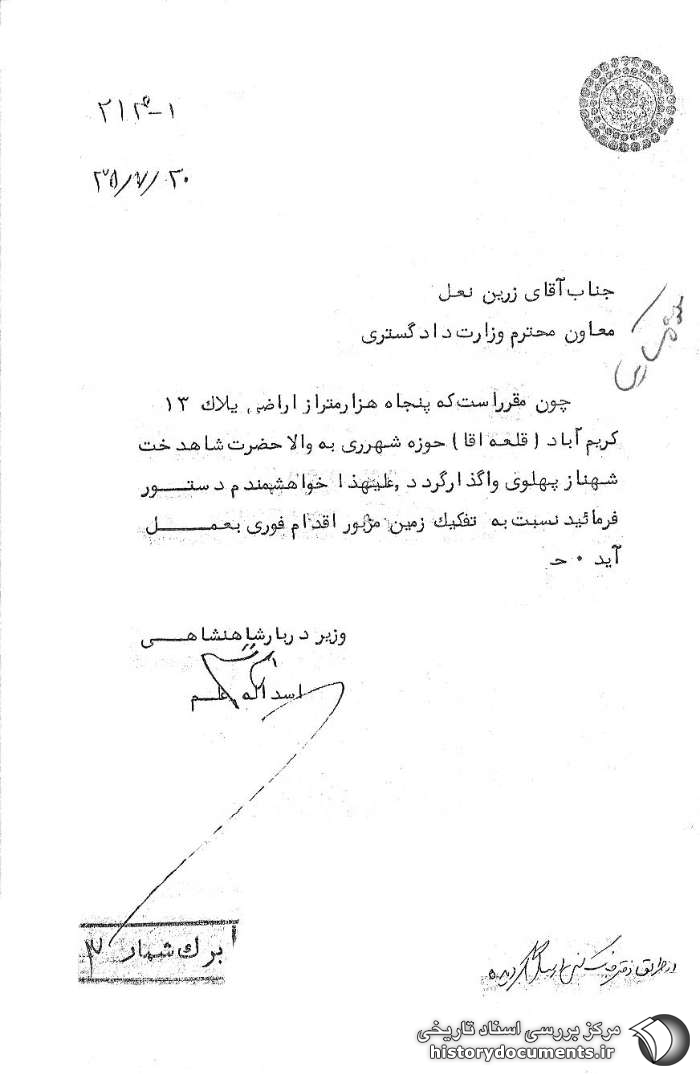 ۲۱۴-۱
جناب آقای زرین نعل
معاون محترم وزارت دادگستری
چون مقرر است که پنجاه هزار متر از اراضی پلاك ۱۳
کریم آباد (قلعه اقا) حوزه شهرری به والا حضرت شاهدخت
شهناز پهلوی واگذار گردد ,علیهذا خواهشمندم دستور
فرمائید نسبت به تفکیك زمین مزبور اقدام فوری بعمل
آید ۰ حـ
وزیر دربار شاهنشاهی
اسداله علم
برك شمار ۳
از طریق دفتر
گردیده
مرکز بررسی اسناد تاریخی
historydocuments.ir